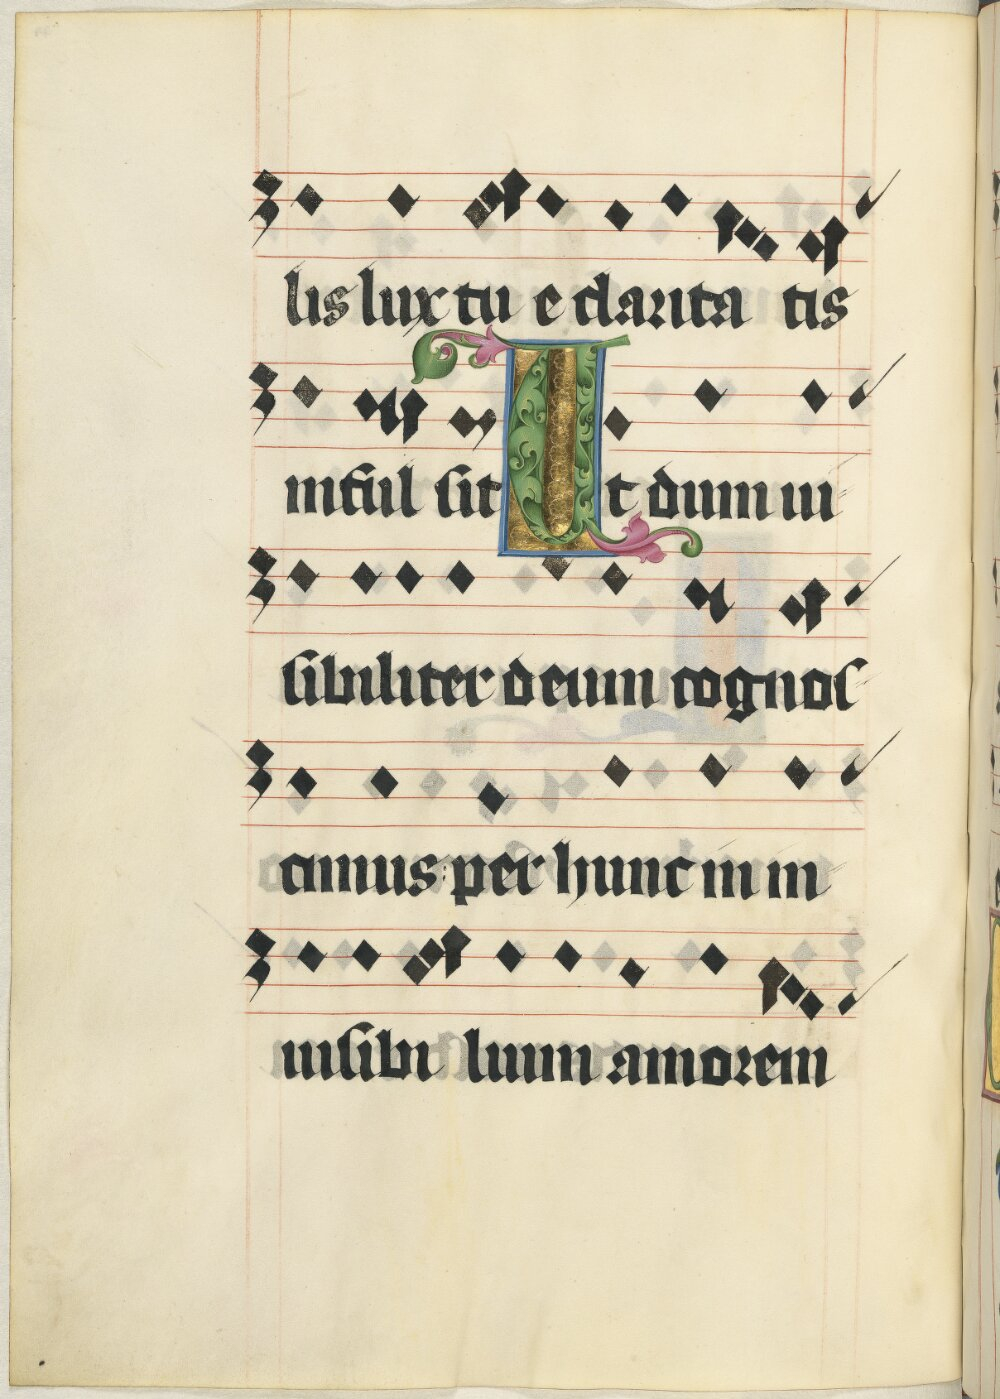 lis lux tu e clarita tis
inful sit Ut dum ui
sibiliter deum cognos
cimus per hunc in in
uisibi lium amorem